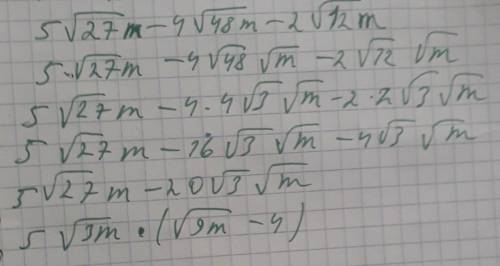 5√27 m − 4√48m − 2√12 m
5·√27 m − 4√48 √m − 2√12 √m
5√27 m − 4·4√3 √m − 2·2√3 √m
5√27 m − 16√3 √m − 4√3 √m
5√27 m − 20√3 √m
5√3m · (√9m − 4)